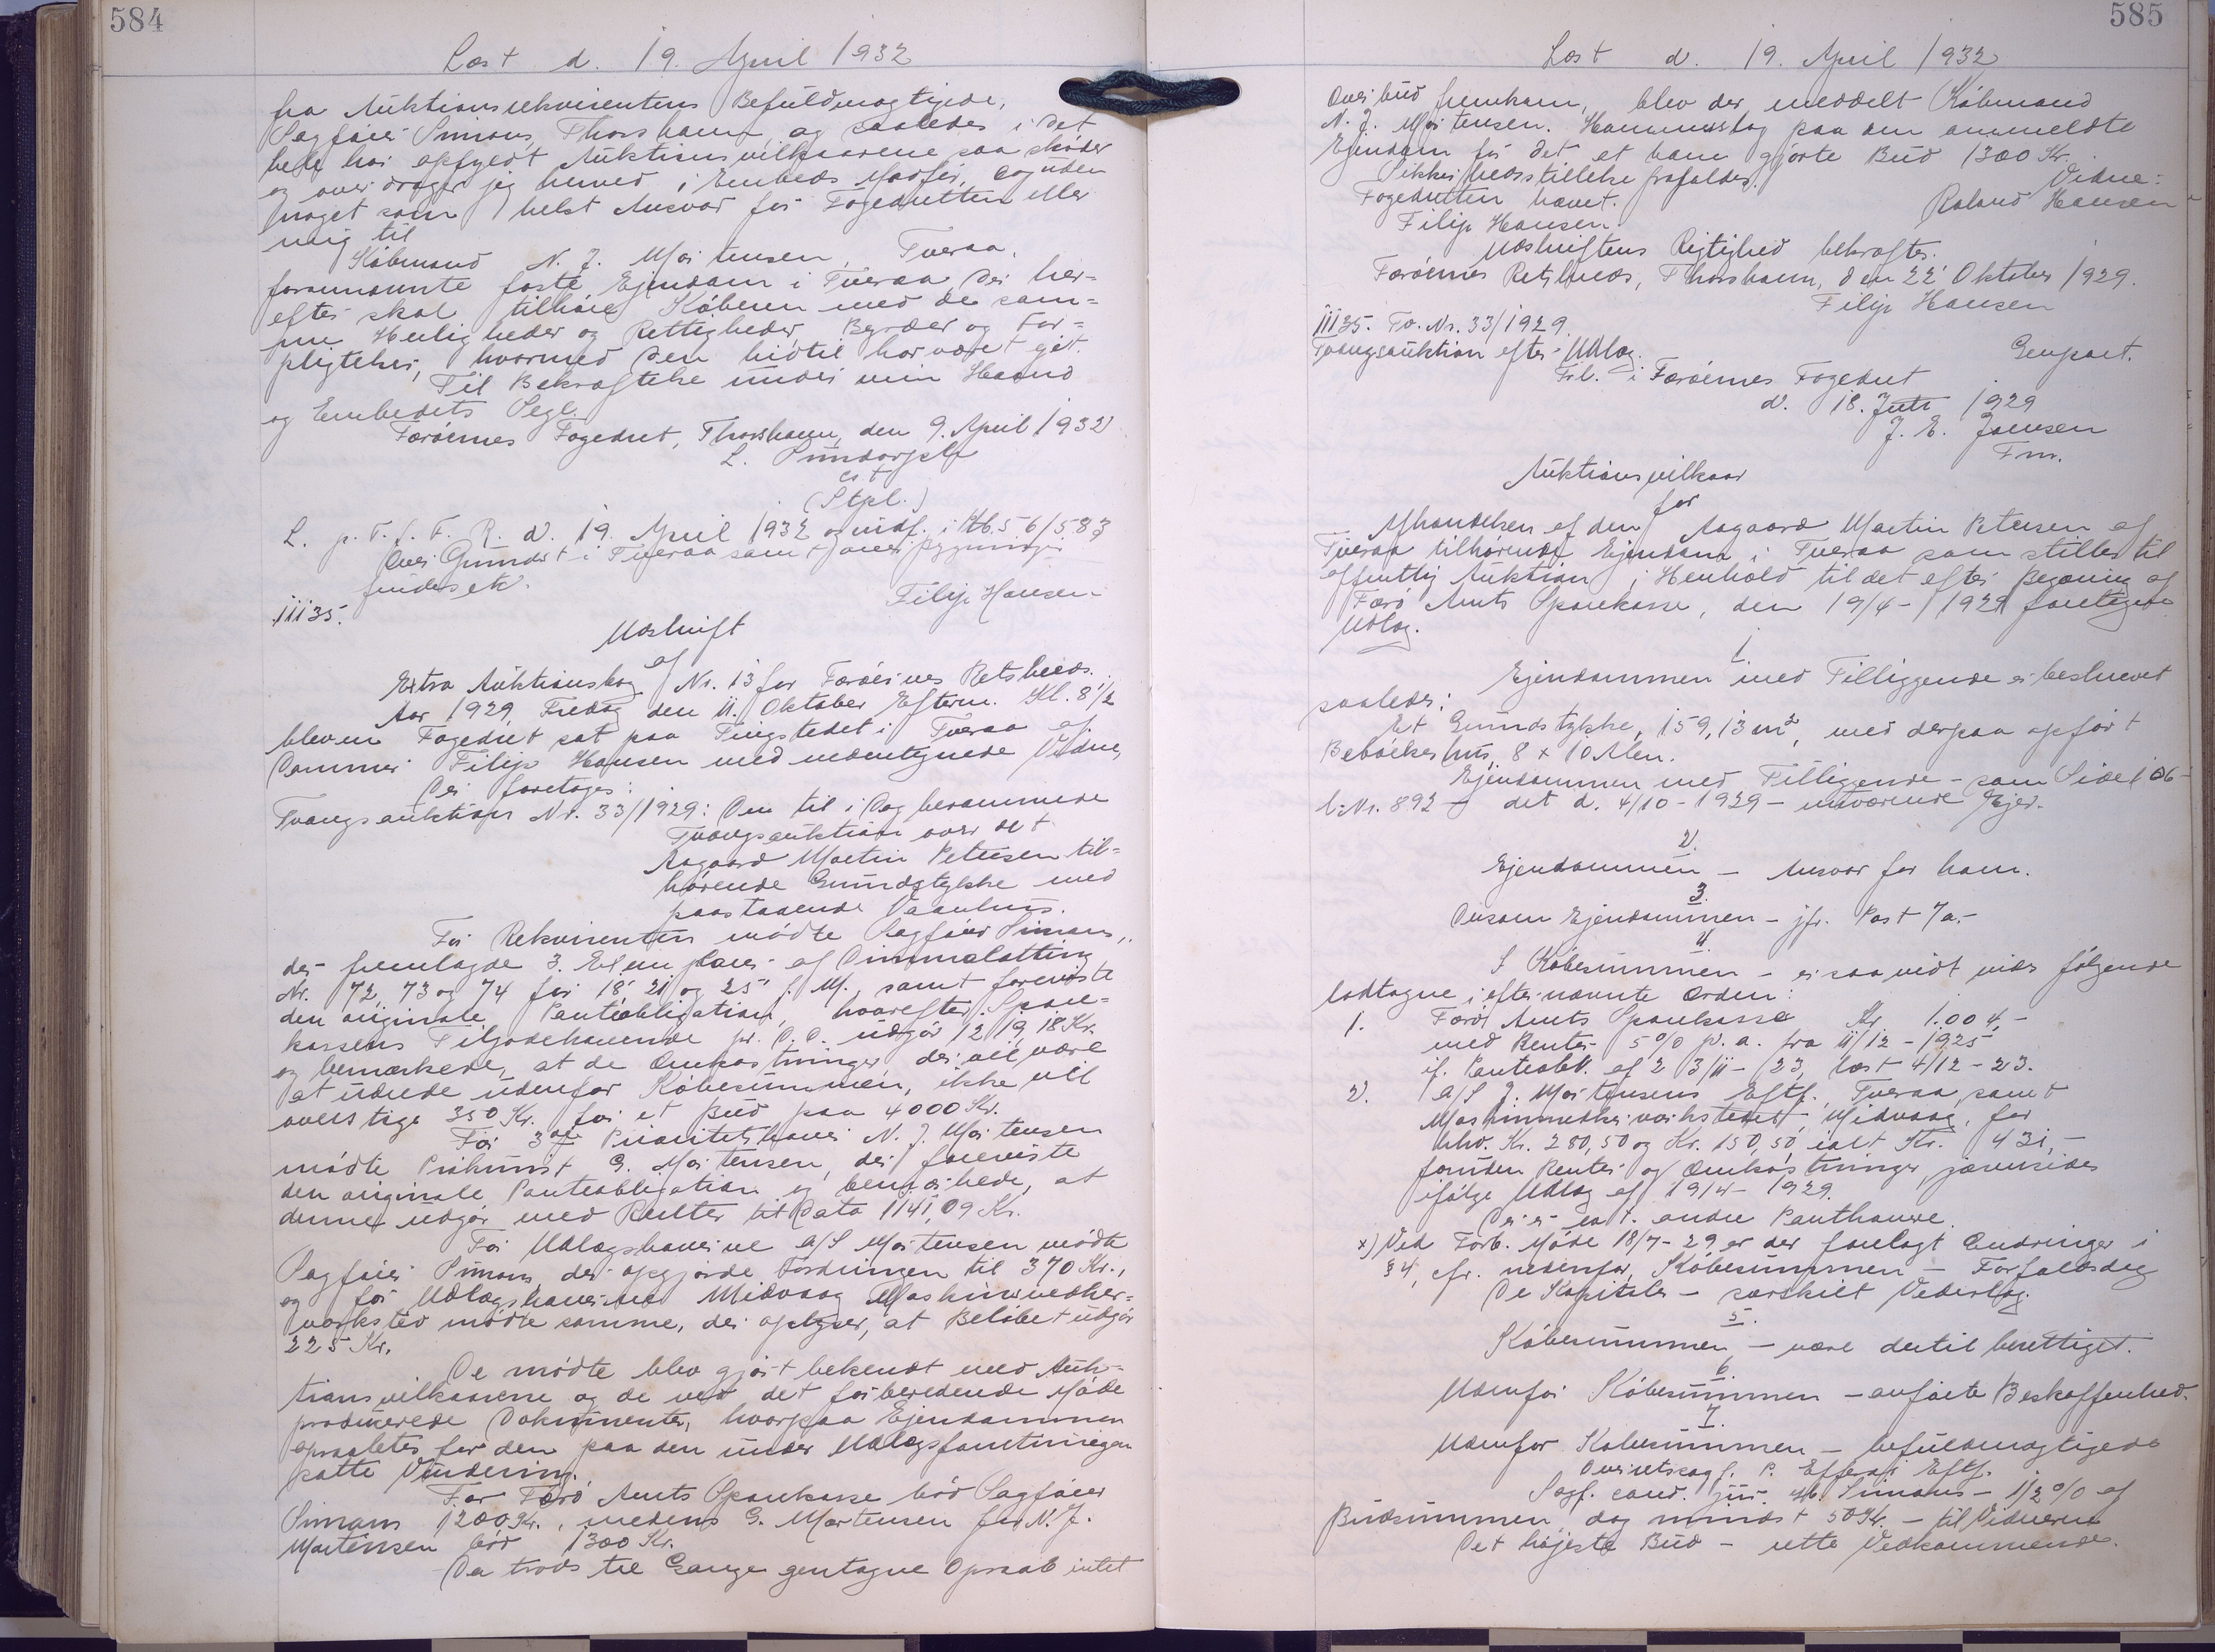 584
Læst d. 19. April 1932
fra Auktionsrekvirentens Befuldmægtigede,
Sagfører Simans, Thorshavn, og saaledes i det
hele har opfyldt Auktionsvilkaarene saa skøder
og overdrager jeg herved i Embeds Medfør, dog uden
noget som helst Ansvar for Fogedretten eller
mig til
Købmand N. J. Mortensen, Tveraa,
forannævnte faste Ejendom i Tveraa, der her=
efter skal tilhøre Køberen med de sam=
me Herligheder og Rettigheder, Byrder og For=
pligtelser, hvormed den hidtil har været ejet.
Til Bekræftelse under min Haand
og Embedets Segl.
Færøernes Fogedret, Thorshavn, den 9. April 1932
L.
cst
(Stpl.)
L. p. T. f. F. R. d. 19. April 1932 og indf. i Ktb. 56/583
Over Grundet i Tveraa samt over Bygninger
findes ek.
Filip Hansen
1135.
Udskrift
af
Extra Auktionsbog Nr. 13 for Færøernes Retskreds.
Aar 1929, Fredag den 11. Oktober Efterm. Kl. 8 1/2
blev en Fogedret sat paa Tingstedet i Tveraa af
Dommer Filip Hansen med undertegnede Vidne,
Der foretoges:
Tvangsauktion Nr. 33/1929: Den til i Dag berammede
Tvangsauktion over det
Aagaard Martin Petersen til=
hørende Grundstykke med
paastaaende Vaanhus.
For Rekvirenten mødte Sagfører Simans,
der fremlagde 3. Exemplarer af Dimmalætting
Nr. 72, 73 og 74 for 18' 21' og 25' f. M., samt foreviste
den originale Panteobligation, hvorefter Spare=
kassens Tilgodehavende pr. D. D. udgør 1219,18 Kr.
og bemærkede, at de Omkostninger der vil være
at udrede udenfor Købesummen, ikke vil
overstige 350 Kr. for et Bud paa 4000 Kr.
For 3die Prioritetshaver N. J. Mortensen
mødte Prokurist G. Mortensen, der foreviste
den originale Panteobligation og bemærkede, at
denne udgør med Renter til Dato 1141,09 Kr.
For Udlægshaverne A/S Mortensen mødte
Sagfører Simans, der opgjorde Fordringen til 370 Kr.,
og for Udlægshaverne Midvaag Maskinsnedker=
værksted mødte samme, der oplyser, at Beløbet udgør
225 Kr.
De mødte blev gjort bekendt med Auk=
tionsvilkaarene og de ved det forberedende Møde
producerede Dokumenter, hvorpaa Ejendommen
opraabtes for den paa den under Udlægsforretningen
satte Vurdering.
For Færø Amts Sparekasse bød Sagfører
Simans 1200 Kr., medens G. Mortensen for N. J.
Mortensen bød 1300 Kr.
Da trods tre Gange gentagne Opraab intet
585
Læst d. 19. April 1932
Overbud fremkom, blev der meddelt Købmand
N. J. Mortensen. Hammerslag paa den anmeldte
Ejendom for det at ham gjorte Bud 1300 Kr.
Sikkerhedsstillelse frafaldes.
Vidne:
Fogedretten hævet.
Roland Hansen
Filip Hansen.
Udskriftens Rigtighed bekræftes.
Færøernes Retskreds, Thorshavn, den 22' Oktober 1929.
Filip Hansen
1135. Tv. Nr. 33/1929.
Tvangsauktion efter Udlæg.
Genpart.
Frl. i Færøernes Fogedret
d. 18. Juli 1929
J. E. Joensen
Fm.
Auktionsvilkaar
for
Afhændelsen af den Aagaard Martin Petersen af
Tveraa tilhørende Ejendom i Tveraa som stilles til
offentlig Auktion i Henhold til det efter Begæring af
Færø Amts Sparekasse, den 19/4 - 1929 foretagne
Udlæg.
1
Ejendommen med Tilliggende er beskrevet
saaledes:
Et Grundstykke, 159,13 m², med derpaa opført
Beboelseshus, 8 x 10 Alen.
Ejendommen med Tilliggende - som Side 106-
l. Nr. 892 - det d. 4/10 - 1929 - nuværende Ejer.
2.
Ejendommen - Ansvar for ham.
3.
Dersom Ejendommen - jfr. Post 7a.-
4.
I Købesummen - er saavidt vides følgende
lodtagne i efternævnte Orden:
1. Færø Amts Sparekasse Kr. 1.004,-
med Renter 5% p. a. fra 11/12 - 1925
if. Panteobl. af 23/11 - 23, læst 4/12 - 23.
2. A/S J. Mortensens Eftf., Tveraa samt
Maskinsnedkerværkstedet, Midvaag, for
hhv. Kr. 280,50 og Kr. 150,50, ialt Kr. 431,-
foruden Renter og Omkostninger, jævnsides
ifølge Udlæg af 19/4 - 1929.
Der er ent. andre Panthavere.
x) Ved Forb. Møde 18/7 - 29 er der forelagt Ændringer i
§ 4, cfr. nedenfor, Købesummen - Forfaldsdag
De Kapitaler - særskilt Vederlag.
5.
Købesummen - være dertil berettiget.
6.
Udenfor Købesummen - anførte Beskaffenhed.
7.
Udenfor Købesummen - befuldmægtigede
Overretssagf. P. Effersø Eftf.
Sagf. cand. jur. Simans - 1 1/2 % af
Budsummen, dog mindst 50 Kr. - til Vidnerne
Det højeste Bud - rette Vedkommende.